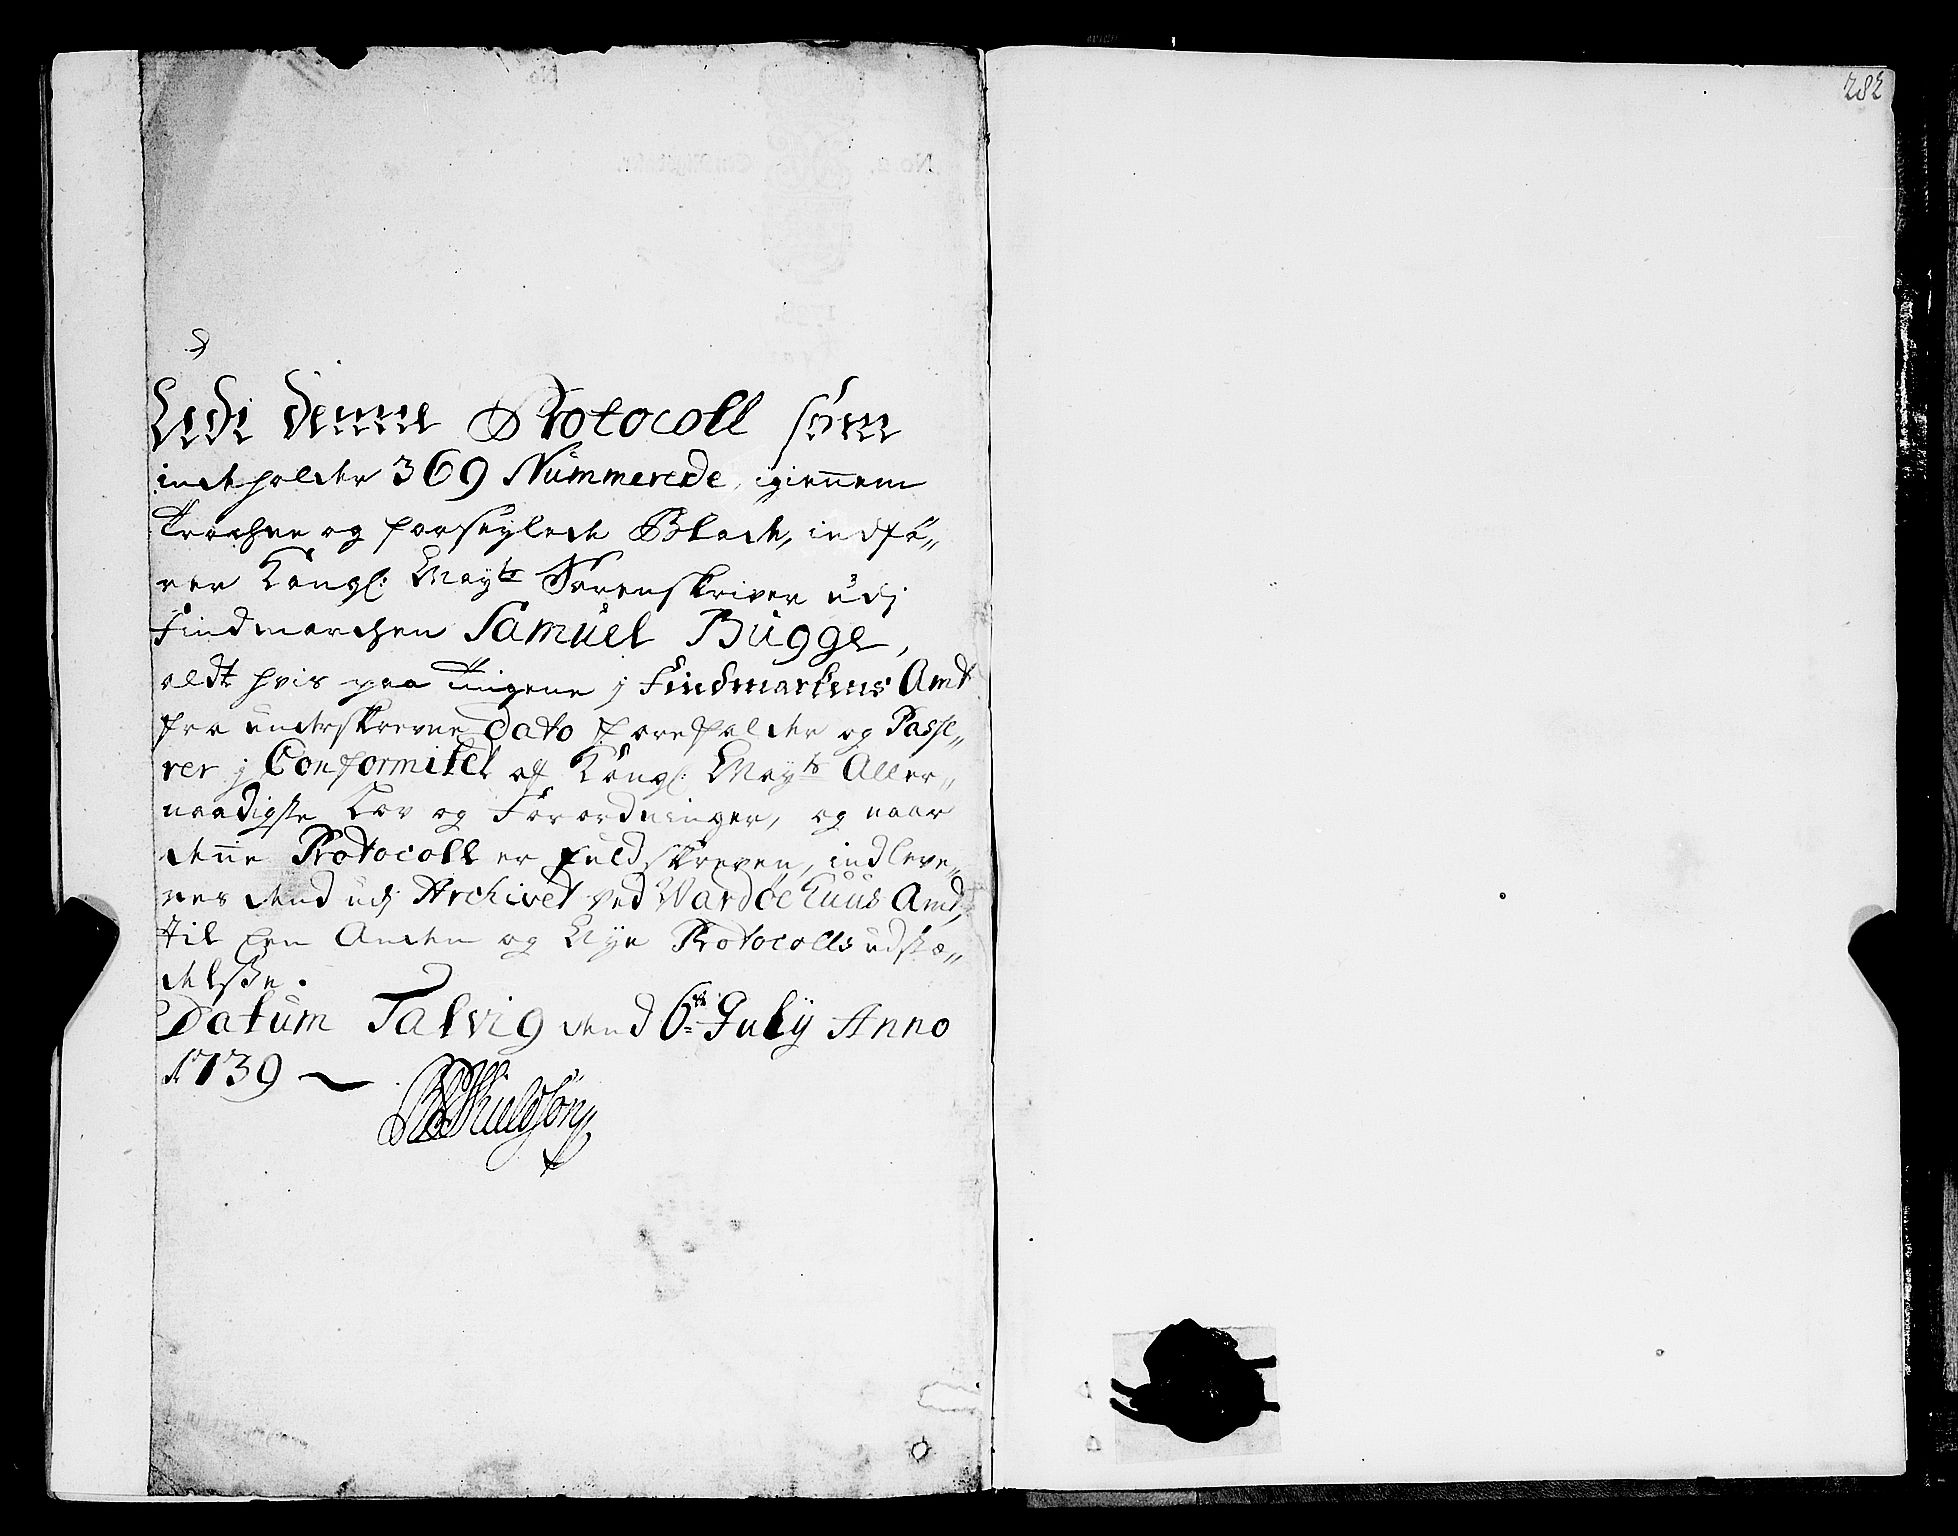 282
Udi denne Protocoll som
indeholder 369 Nummerede, igiennem
trochne og forseylede Blade, indfø„
rer Kongl: Mayts Sorenskriver udj
Findmarchen Samuel Bugge,
aldt hvis paa Tingene j Findmarkens Amt
fra underskrevne Dato forefalder og Passe„
rer j Conformitet af Kongl: Mayts Aller„
naadigste Lov og Forordninger, og naar
denne Protocoll er fuldskreven, indleve„
res dend udj Archivet ved Wardøehuus Amt,
til een Anden og Nye Protocolls udstæ„
delsse.
Datum Talvig dend 6te July Anno
1739